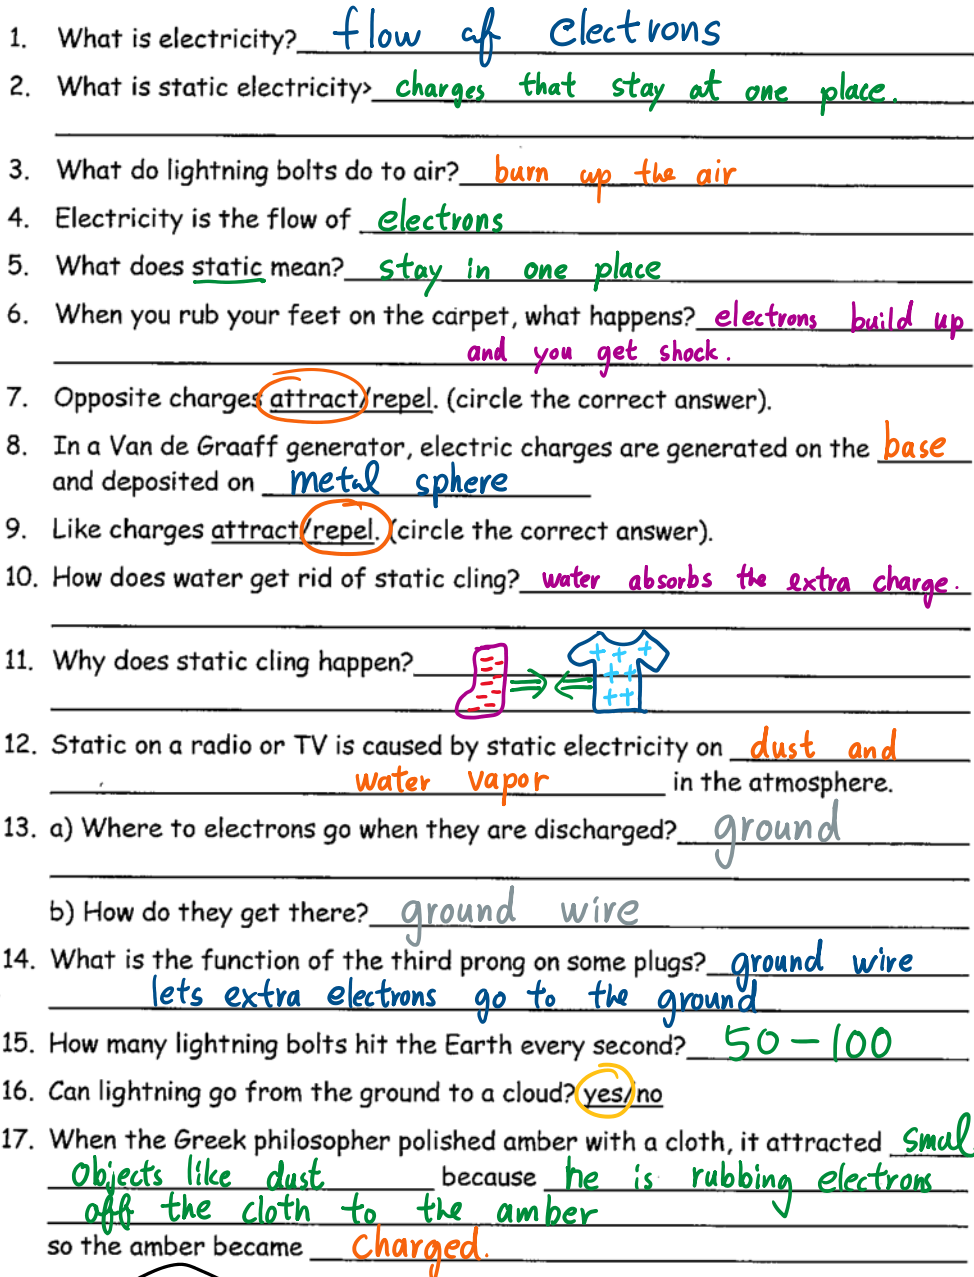 1. What is electricity? flow of electrons
2. What is static electricity> charges that stay at one place.
3. What do lightning bolts do to air? burn up the air
4. Electricity is the flow of electrons
5. What does static mean? stay in one place
6. When you rub your feet on the carpet, what happens? electrons build up
and you get shock.
7. Opposite charges attract/repel. (circle the correct answer).
8. In a Van de Graaff generator, electric charges are generated on the base
and deposited on metal sphere
9. Like charges attract/repel. (circle the correct answer).
10. How does water get rid of static cling? water absorbs the extra charge.
11. Why does static cling happen?
12. Static on a radio or TV is caused by static electricity on dust and
water vapor in the atmosphere.
13. a) Where to electrons go when they are discharged? ground
b) How do they get there? ground wire
14. What is the function of the third prong on some plugs? ground wire
lets extra electrons go to the ground
15. How many lightning bolts hit the Earth every second? 50-100
16. Can lightning go from the ground to a cloud? yes/no
17. When the Greek philosopher polished amber with a cloth, it attracted smal
objects like dust because he is rubbing electrons
off the cloth to the amber
so the amber became charged.